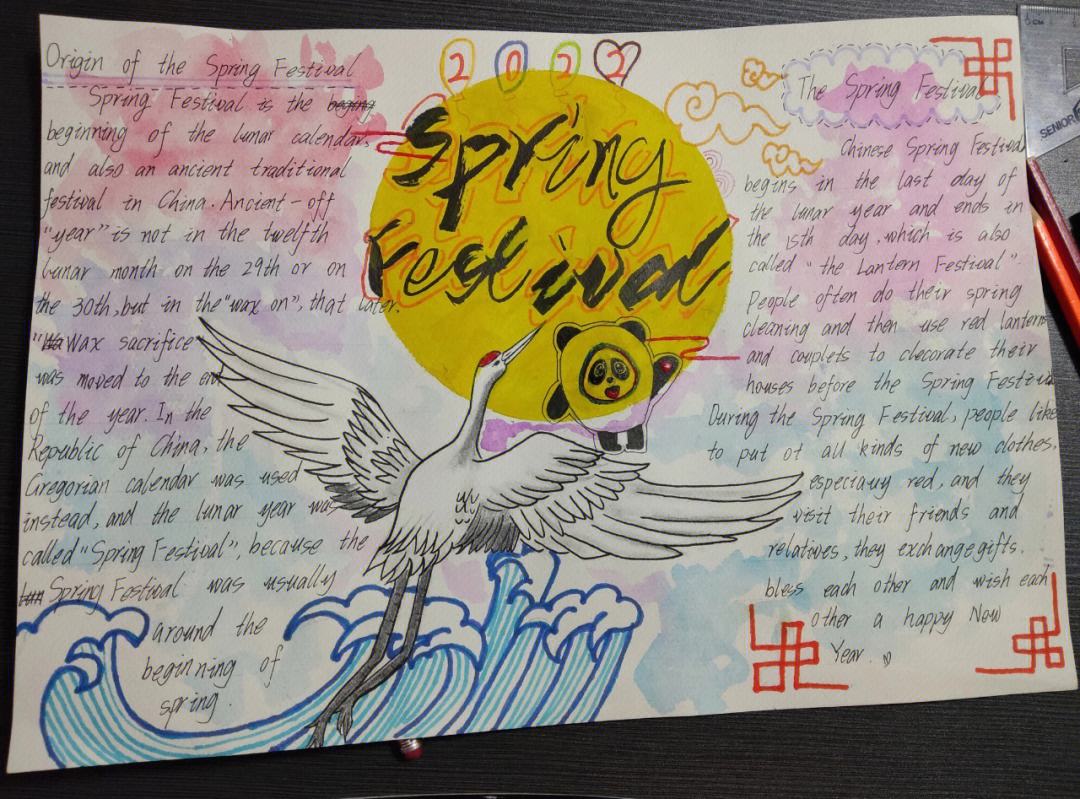 2022
Spring
Festival
Origin of the Spring Festival
Spring Festival is the
beginning of the lunar calendar,
and also an ancient traditional
festival in China. Ancient-off
"year" is not in the twelfth
lunar month on the 29th or on
the 30th, but in the "wax on", that later.
"Wax sacrifice"
was moved to the end
of the year. In the
Republic of China, the
Gregorian calendar was used
instead, and the lunar year was
called "Spring Festival", because the
Spring Festival was usually
around the
beginning of
spring.
The Spring Festival
Chinese Spring Festival
begins in the last day of
the lunar year and ends in
the 15th day, which is also
called "the Lantern Festival".
People often do their spring
cleaning and then use red lantern
and couplets to decorate their
houses before the Spring Festival
During the Spring Festival, people like
to put ot all kinds of new clothes,
especiauy red, and they
visit their friends and
relatives, they exchange gifts.
bless each other and wish each
other a happy New
Year.
1cm
SENIOR